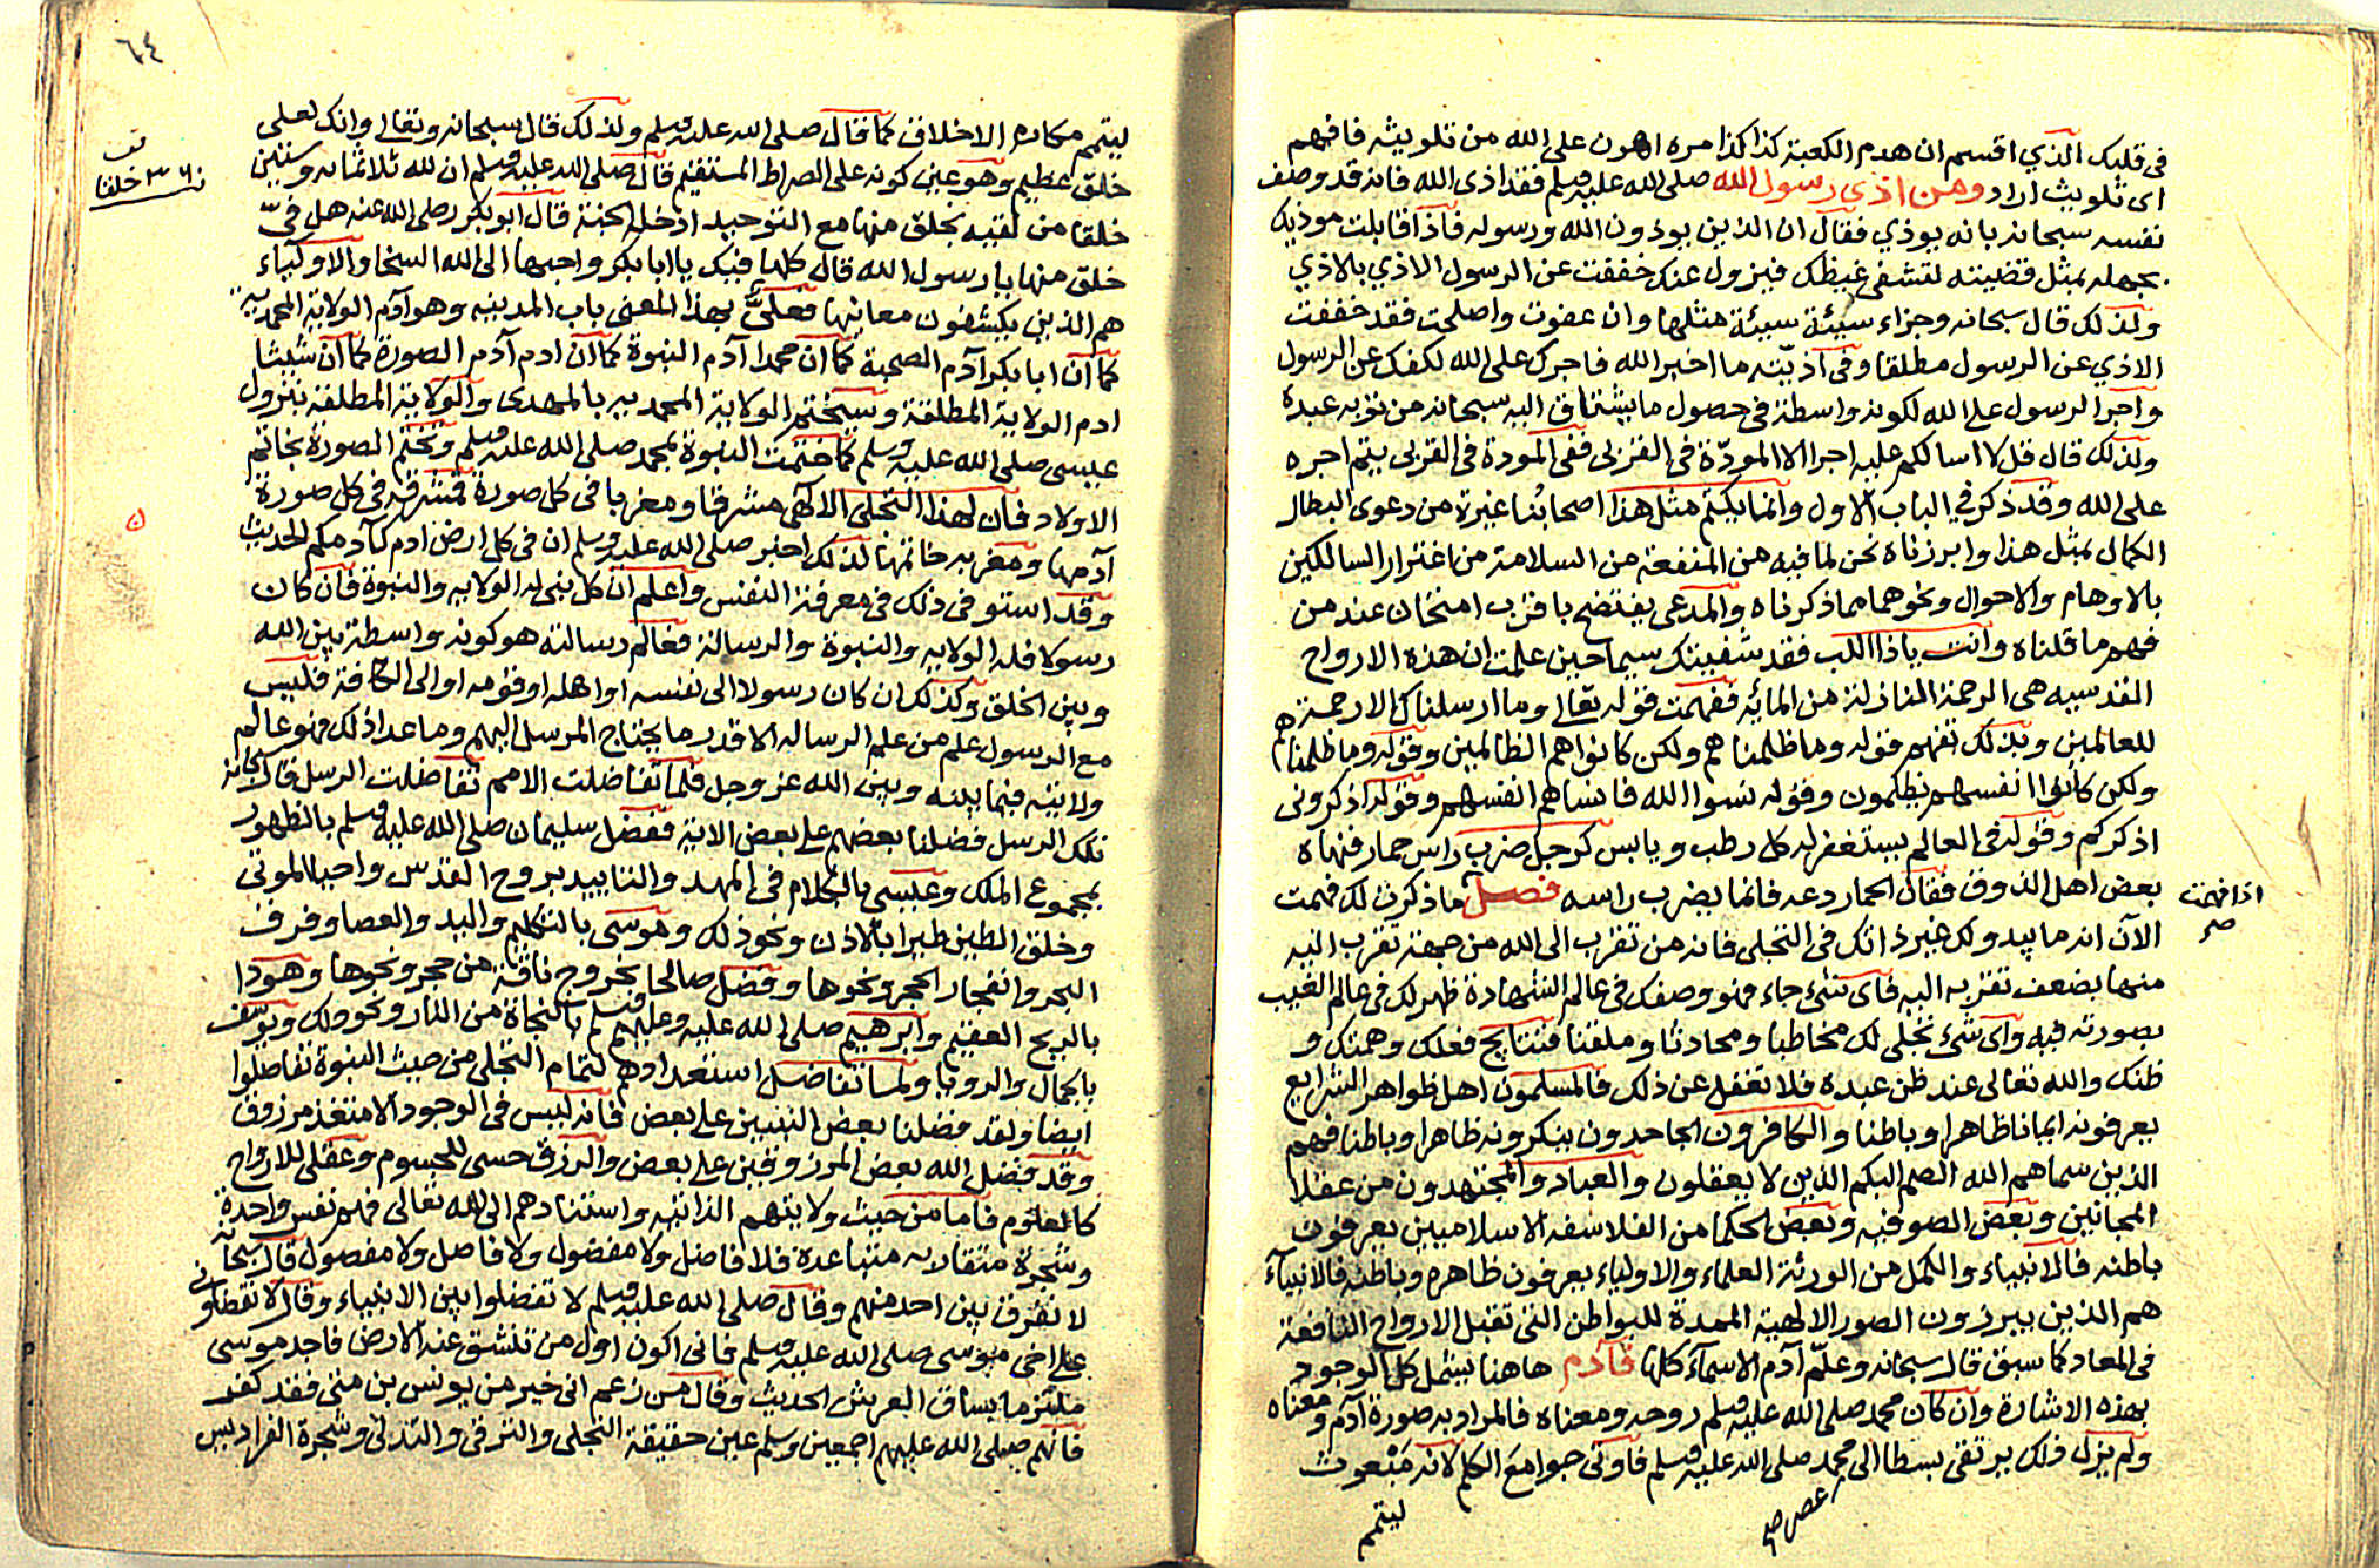 في قلبك الذي اقسم ان هدم الكعبة كذا كذا مره اهون على الله من تلويثه فافهم
اى تلويث اراد ومن اذى رسول الله صلى الله عليه وسلم فقد اذى الله فانه قد وصف
نفسه سبحانه بانه يوذي فقال ان الذين يوذون الله ورسوله فاذا قابلت موذيك
بجهله بمثل قضيته لتشفى غيظك فيزول عنك خففت عن الرسول الاذي بالاذي
ولذلك قال سبحانه وجزاء سيئة سيئة مثلها وان عفوت واصلحت فقد خففت
الاذي عن الرسول مطلقا وفى اذيته ما اخبر الله فاجرك على الله لكفك عن الرسول
واجر الرسول على الله لكونه واسطة فى حصول ما يشتاق اليه سبحانه من توبه عبده
ولذلك قال قل لا اسالكم عليه اجرا الا المودّة فى القربى ففى المودة فى القربى يتم اجره
على الله وقد ذكر في الباب الاول وانما يكتم مثل هذا اصحابنا غيرة من دعوى البطال
الكمال بمثل هذا وابرزناه نحن لما فيه من المنفعة من السلامة من اغترار السالكين
بالاوهام والاحوال ونحوهما مما ذكرناه والمدعى يفتضح باقرب امتحان عند من
فهم ما قلناه وانت ياذا اللب فقد شفيتك سيما حين علمت ان هذه الارواح
القدسيه هى الرحمة النازلة من المائه ففهمت قوله تعالى وما ارسلناك الا رحمة
للعالمين وبذلك تفهم قوله وما ظلمناهم ولكن كانوا هم الظالمين وقوله وما ظلمناهم
ولكن كانوا انفسهم يظلمون وقوله نسوا الله فانساهم انفسهم وقوله اذكرونى
اذكركم وقوله فى العالم يستغفر له كل رطب ويابس كرجل ضرب راس حمار فنهاه
بعض اهل الذوق فقال الحمار دعه فانما يضرب راسه فصل ما ذكرت لك فهمت
اذا فهمت
صح
الآن انه ما يبدو لك غير ذاتك فى التجلى فانه من تقرب الى الله من جهة تقرب اليه
منها بضعف تقربه اليه فاى شئ جاء فهو وصفك فى عالم الشهادة ظهر لك فى عالم الغيب
بصورته فيه واى شئ تجلى لك مخاطبا ومحادثا وملقنا فنتايج فعلك وهمتك و
ظنك والله تعالى عند ظن عبده فلا تغفل عن ذلك فالمسلمون اهل ظواهر الشرايع
يعرفونه ايمانا ظاهرا وباطنا والكافرون الجاحدون ينكرونه ظاهرا وباطنا فهم
الذين سماهم الله الصم البكم الذين لا يعقلون والعباد والمجتهدون من عقلا
المجانين وبعض الصوفيه وبعض الحكما من الفلاسفه الاسلاميين يعرفون
باطنه فالانبياء والكمل من الورثة العلماء والاولياء يعرفون ظاهره وباطنه فالانبيآء
هم الذين يبرزون الصور الالهية الممدة للبواطن التى تقبل الارواح النافعة
فى المعاد كما سبق قال سبحانه وعلّم آدم الاسمآء كلها فآدم هاهنا يشمل كل الوجود
بهذه الاشارة وان كان محمد صلى الله عليه وسلم روحه ومعناه فالمراد به صورة آدم ومعناه
ولم يزل ذلك يرتقى بسطا الى محمد صلى الله عليه وسلم فاوتى جوامع الكلم لانه مبعوث
ليتمم
٦٤
ليتمم مكارم الاخلاق كما قال صلى الله عليه وسلم ولذلك قال سبحانه وتعالى وانك لعلى
خلق عظيم وهو عين كونه على الصراط المستقيم قال صلى الله عليه وسلم ان لله ثلاثمايه وستين
خلقا من لقيه بخلق منها مع التوحيد ادخل الجنة قال ابو بكر رضى الله عنه هل فىّ
خلق منها يا رسول الله قال كلها فيك يا ابا بكر واحبها الى الله السخا والاوليآء
هم الذين يكشفون معانيها فعلىّ بهذا المعنى باب المدينه وهو آدم الولاية المحمديه
كما آن ابا بكر آدم الصحبة كما ان محمدا آدم النبوة كما ان ادم آدم الصورة كما آن شيثا
ادم الولاية المطلقة وسيختم الولاية المحمديه بالمهدى والولاية المطلقة بنزول
عيسى صلى الله عليه وسلم كما ختمت النبوة بمحمد صلى الله عليه وسلم وتختم الصورة بخاتم
الاولاد فان لهذا التجلى الالهى مشرقا ومغربا فى كل صورة فمشرقه فى كل صورة
آدمها ومغربه خاتمها لذلك اخبر صلى الله عليه وسلم ان فى كل ارض ادم كآدمكم الحديث
وقد استوفى ذلك فى معرفة النفس واعلم ان كل نبى له الولايه والنبوة فان كان
رسولا فله الولايه والنبوة والرسالة فعالم رسالته هو كونه واسطة بين الله
وبين الخلق وكذلك ان كان رسولا الى نفسه او اهله او قومه او الى الكافة فليس
مع الرسول علم من علم الرساله الا قدر ما يحتاج المرسل اليهم وما عدا ذلك فهو عالم
ولايته فيما بينه وبين الله عز وجل فلما تفاضلت الامم تفاضلت الرسل قال سبحانه
تلك الرسل فضلنا بعضهم على بعض الاية ففضل سليمان صلى الله عليه وسلم بالظهور
بمجموع الملك وعيسى بالكلام فى المهد والتاييد بروح القدس واحيا الموتى
وخلق الطين طيرا بالاذن ونحو ذلك وموسى بالتكليم واليد والعصا وفرق
البحر وانفجار الحجر ونحوها وفضل صالحا بخروج ناقة من حجر ونحوها وهودا
بالريح العقيم وابرهيم صلى الله عليه وعليهم وسلم بالنجاة من النار ونحو ذلك ويوسف
بالجمال والرويا ولما تفاضل استعدادهم لتمام التجلى من حيث النبوة تفاضلوا
ايضا ولقد فضلنا بعض النبيين على بعض فانه ليس فى الوجود الا متغذ مرزوق
وقد فضل الله بعض المرزوقين على بعض والرزق حسى للجسوم وعقلى للارواح
كالعلوم فاما من حيث ولايتهم الذاتيه واستنادهم الى الله تعالى فهم نفس واحدة
وشجرة متقاربه متباعدة فلا فاضل ولا مفضول ولا فاصل ولا مفصول قال سبحانه
لا نفرق بين احد منهم وقال صلى الله عليه وسلم لا تفضلوا بين الانبياء وقال لا تفضلونى
على اخى موسى صلى الله عليه وسلم فانى اكون اول من تنشق عنه الارض فاجد موسى
ملتزما بساق العرش الحديث وقال من زعم انى خير من يونس بن متى فقد كفر
فانهم صلى الله عليهم اجمعين وسلم عين حقيقة التجلى والترقى والتدلى وشجرة الفراديس